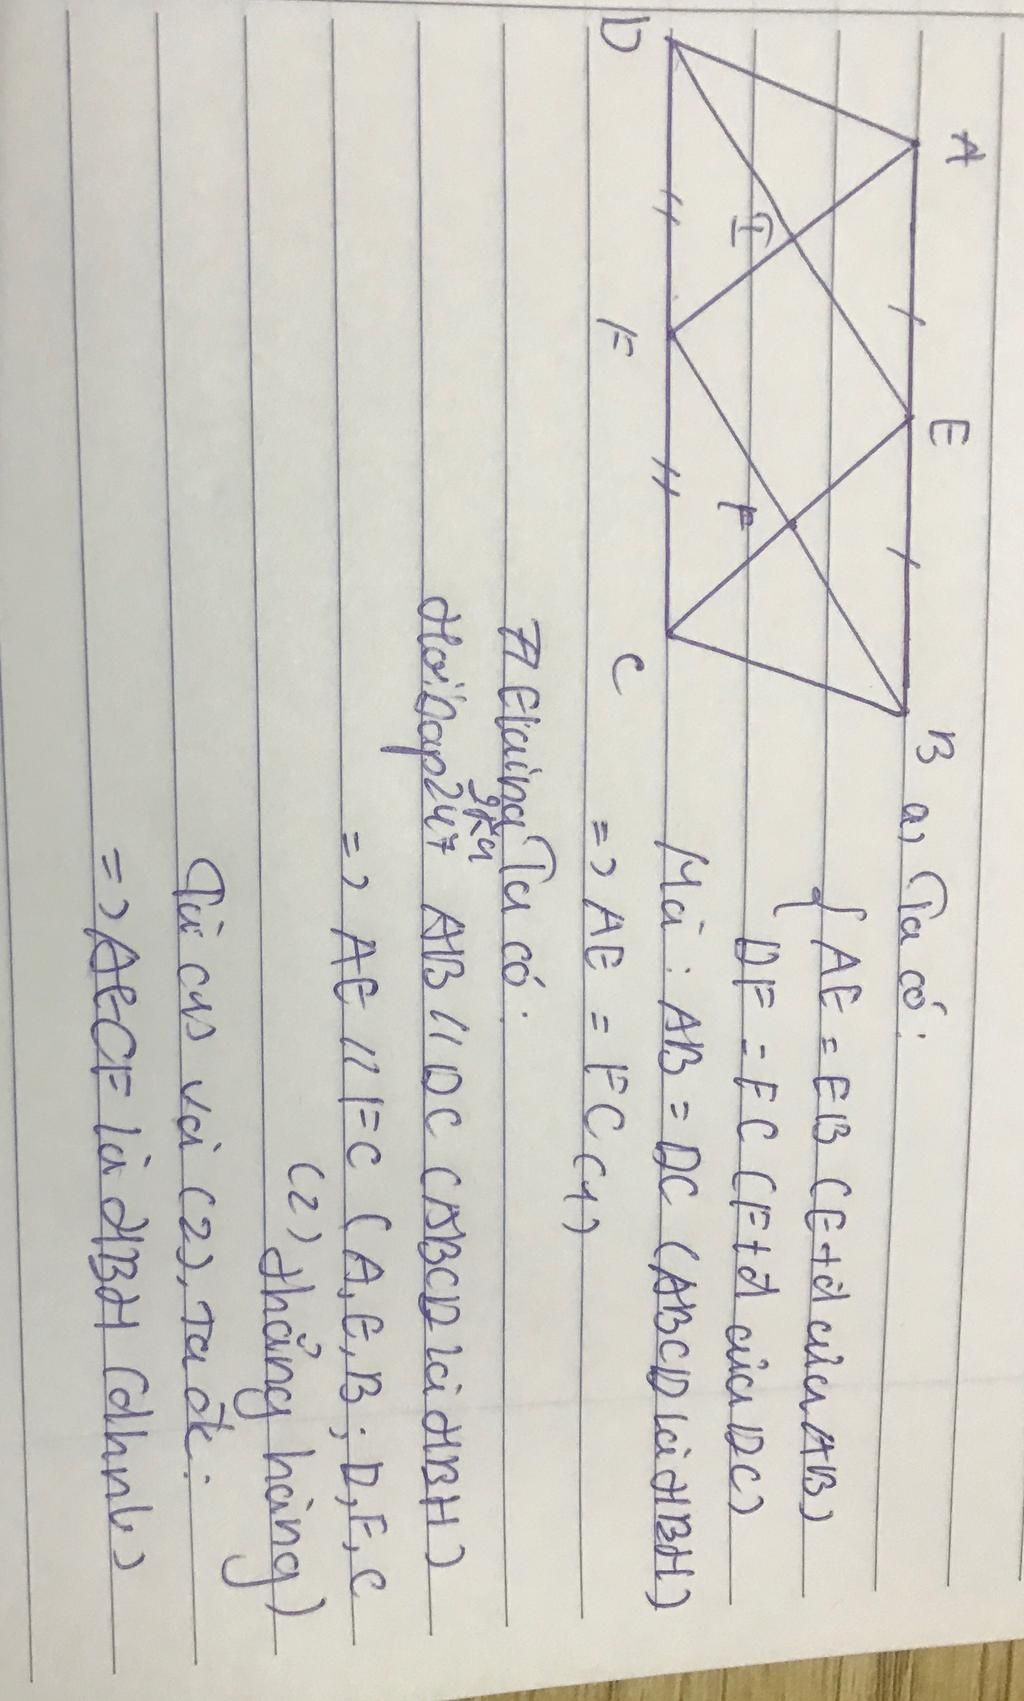 A E B
I F
D F C
a, Ta có:
{ AE = EB (E tđ của AB)
DF = FC (F tđ của DC)
Mà: AB = DC (ABCD là HBH)
=> AE = FC (1)
Ta có:
Hoidap247 AB // DC (ABCD là HBH)
=> AE // FC (A, E, B; D, F, C
(2) thẳng hàng)
Từ (1) và (2), Ta đc:
=> AECF là HBH (dhnb)